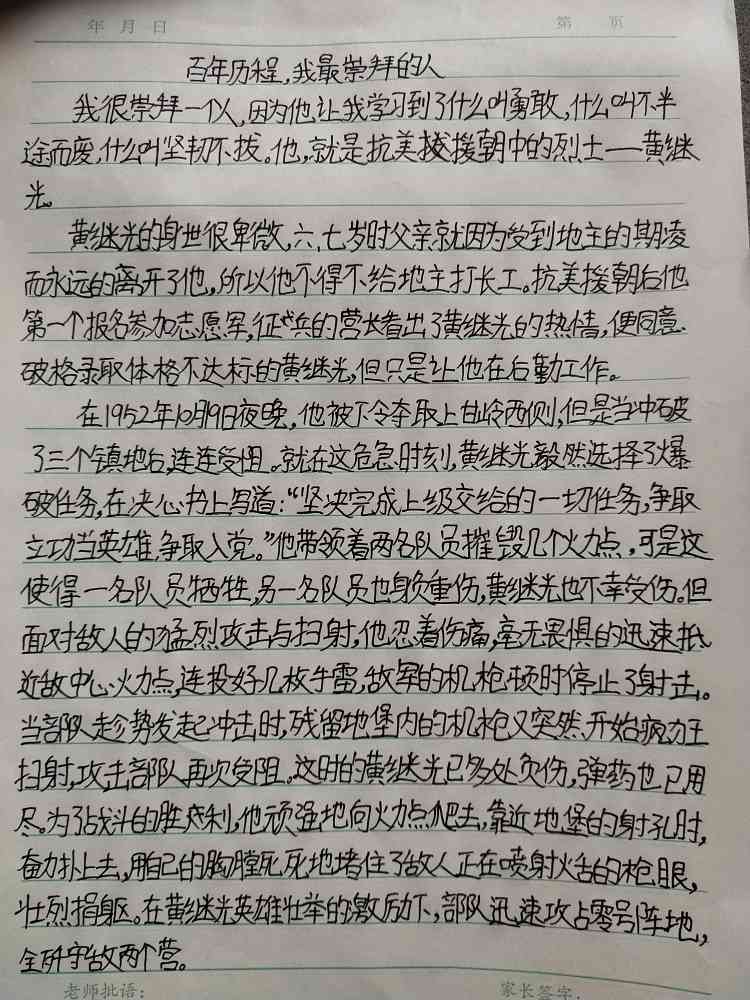 年 月 日 第 页
百年历程，我最崇拜的人
我很崇拜一个人，因为他让我学习到了什么叫勇敢，什么叫不半
途而废，什么叫坚韧不拔。他，就是抗美援朝中的烈士——黄继
光。
黄继光的身世很卑微，六、七岁时父亲就因为受到地主的期凌
而永远的离开了他，所以他不得不给地主打长工。抗美援朝后他
第一个报名参加志愿军，征兵的营长看出了黄继光的热情，便同意
破格录取体格不达标的黄继光，但只是让他在后勤工作。
在1952年10月19日夜晚，他被下令夺取上甘岭西侧，但是当冲破
了三个镇地后，连连受阻。就在这危急时刻，黄继光毅然选择了爆
破任务，在决心书上写道：“坚决完成上级交给的一切任务，争取
立功当英雄，争取入党。”他带领着两名队员摧毁几个火力点，可是这
使得一名队员牺牲，另一名队员也身负重伤，黄继光也不幸受伤。但
面对敌人的猛烈攻击与扫射，他忍着伤痛，毫无畏惧的迅速抵
近敌中心火力点，连投好几枚手雷，敌军的机枪顿时停止了射击。
当部队趁势发起冲击时，残留地堡内的机枪又突然开始疯狂
扫射，攻击部队再次受阻。这时的黄继光已多处负伤，弹药也已用
尽。为了战斗的胜利，他顽强地向火力点爬去，靠近地堡的射孔时，
奋力扑上去，用自己的胸膛死死地堵住了敌人正在喷射火舌的枪眼，
壮烈捐躯。在黄继光英雄壮举的激励下，部队迅速攻占零号阵地，
全歼守敌两个营。
老师批语： 家长签字：